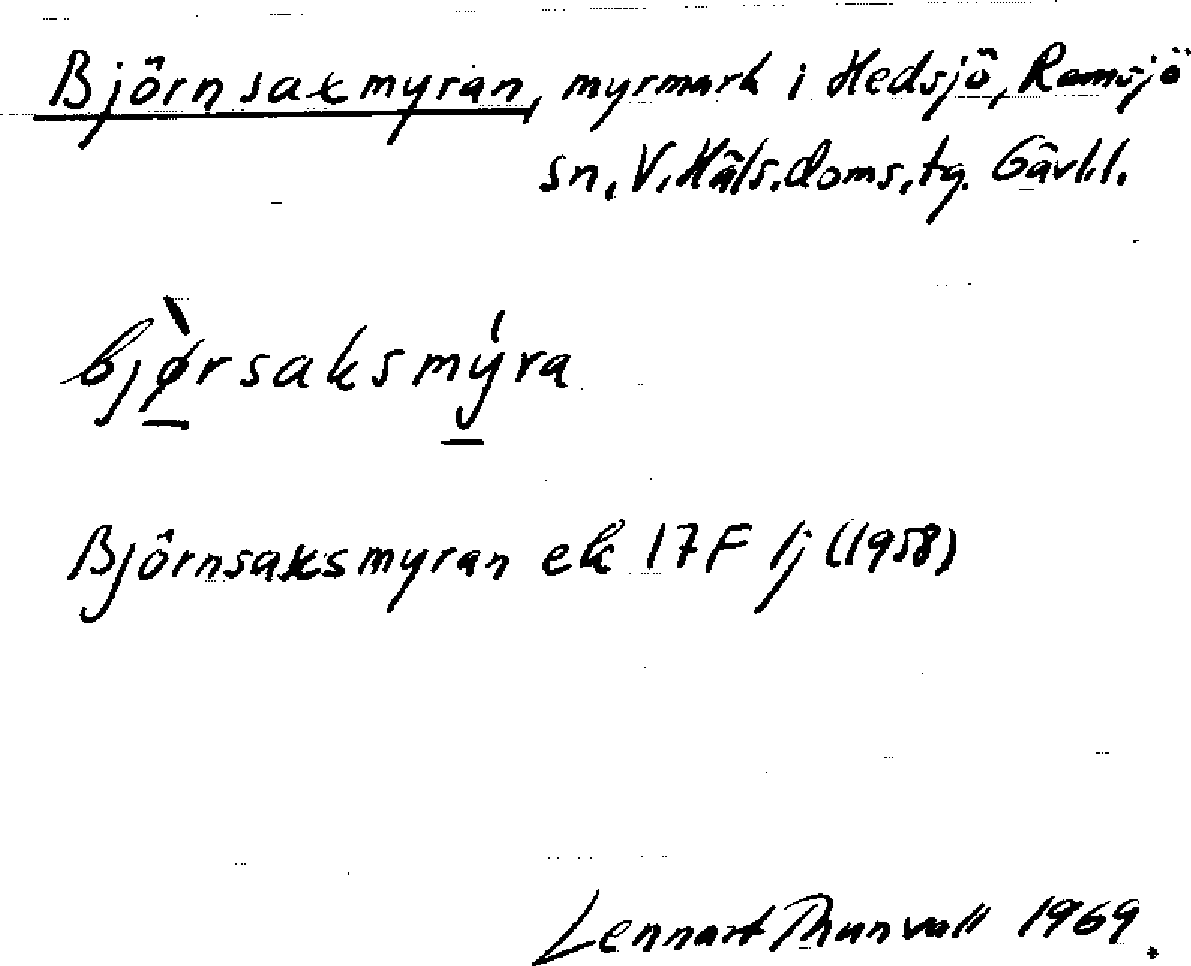 Björnsaxmyran, myrmark i Hedsjö, Ramsjö
sn, V. Häls. doms. tg. Gävl.l.
bjø̀rsaksmýra
Björnsaksmyran ek 17F 1j (1958)
Lennart Thunvall 1969.